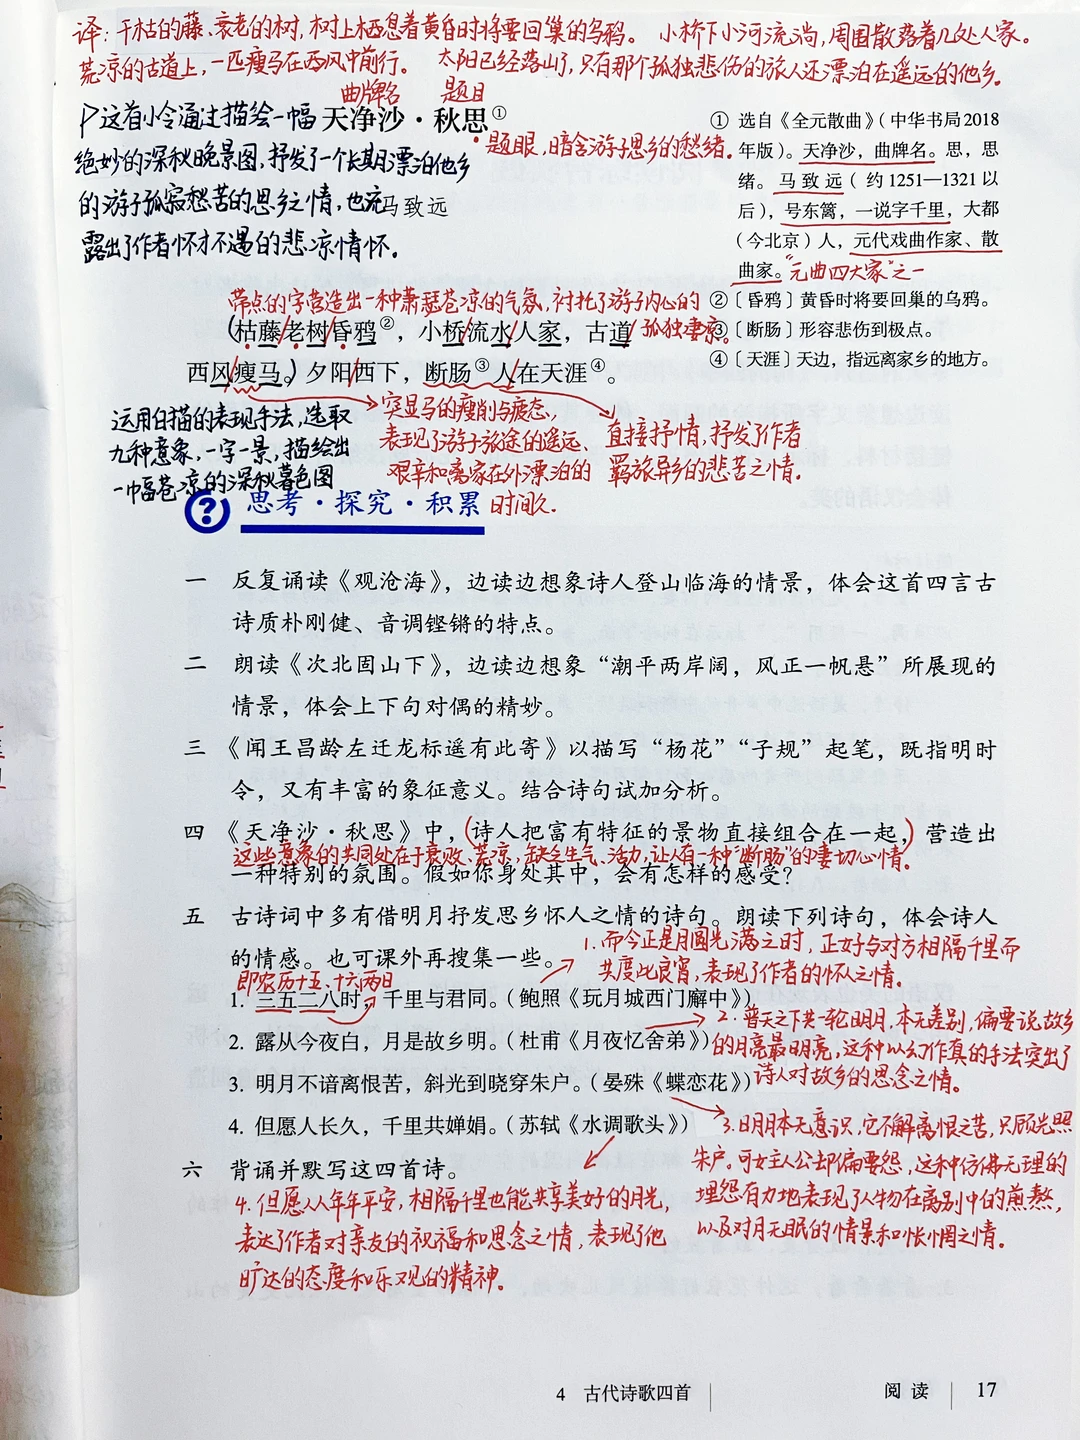 译：干枯的藤、衰老的树，树上栖息着黄昏时将要回巢的乌鸦。 小桥下小河流淌，周围散落着几处人家。
荒凉的古道上，一匹瘦马在西风中前行。 太阳已经落山了，只有那个孤独悲伤的旅人还漂泊在遥远的他乡。
曲牌名 题目
这首小令通过描绘一幅
绝妙的深秋晚景图，抒发了一个长期漂泊他乡
的游子孤寂愁苦的思乡之情，也流
露出了作者怀才不遇的悲凉情怀。
天净沙·秋思①
题眼，暗含游子思乡的愁绪。
马致远
① 选自《全元散曲》（中华书局2018
年版）。天净沙，曲牌名。思，思
绪。马致远（约1251—1321以
后），号东篱，一说字千里，大都
（今北京）人，元代戏曲作家、散
曲家。“元曲四大家”之一
②〔昏鸦〕黄昏时将要回巢的乌鸦。
③〔断肠〕形容悲伤到极点。
④〔天涯〕天边，指远离家乡的地方。
带点的字营造出一种萧瑟苍凉的气氛，衬托了游子内心的
孤独凄凉。
（枯藤/老树/昏鸦②，小桥/流水/人家，古道/
西风/瘦马。）夕阳/西下，断肠③人/在天涯④。
突显马的瘦削与疲态，
表现了游子旅途的遥远、
艰辛和离家在外漂泊的
时间久.
直接抒情，抒发了作者
羁旅异乡的悲苦之情。
运用白描的表现手法，选取
九种意象，一字一景，描绘出
一幅苍凉的深秋暮色图
思考·探究·积累
一 反复诵读《观沧海》，边读边想象诗人登山临海的情景，体会这首四言古
诗质朴刚健、音调铿锵的特点。
二 朗读《次北固山下》，边读边想象“潮平两岸阔，风正一帆悬”所展现的
情景，体会上下句对偶的精妙。
三 《闻王昌龄左迁龙标遥有此寄》以描写“杨花”“子规”起笔，既指明时
令，又有丰富的象征意义。结合诗句试加分析。
四 《天净沙·秋思》中，（诗人把富有特征的景物直接组合在一起，）营造出
这些意象的共同处在于衰败、荒凉，缺乏生气、活力，让人有一种“断肠”的凄切心情。
一种特别的氛围。假如你身处其中，会有怎样的感受？
五 古诗词中多有借明月抒发思乡怀人之情的诗句。朗读下列诗句，体会诗人
的情感。也可课外再搜集一些。
1. 而今正是月圆光满之时，正好与对方相隔千里而
共度此良宵，表现了作者的怀人之情。
即农历十五、十六两日
1. 三五二八时，千里与君同。（鲍照《玩月城西门廨中》）
2. 露从今夜白，月是故乡明。（杜甫《月夜忆舍弟》）
3. 明月不谙离恨苦，斜光到晓穿朱户。（晏殊《蝶恋花》）
4. 但愿人长久，千里共婵娟。（苏轼《水调歌头》）
2. 普天之下共一轮明月，本无差别，偏要说故乡
的月亮最明亮，这种以幻作真的手法突出了
诗人对故乡的思念之情。
3. 明月本无意识，它不解离恨之苦，只顾光照
朱户。可女主人公却偏要怨，这种仿佛无理的
埋怨有力地表现了人物在离别中的煎熬，
以及对月无眠的情景和怅惘之情。
六 背诵并默写这四首诗。
4. 但愿人人年年平安，相隔千里也能共享美好的月光，
表达了作者对亲友的祝福和思念之情，表现了他
旷达的态度和乐观的精神。
4 古代诗歌四首
阅读 17